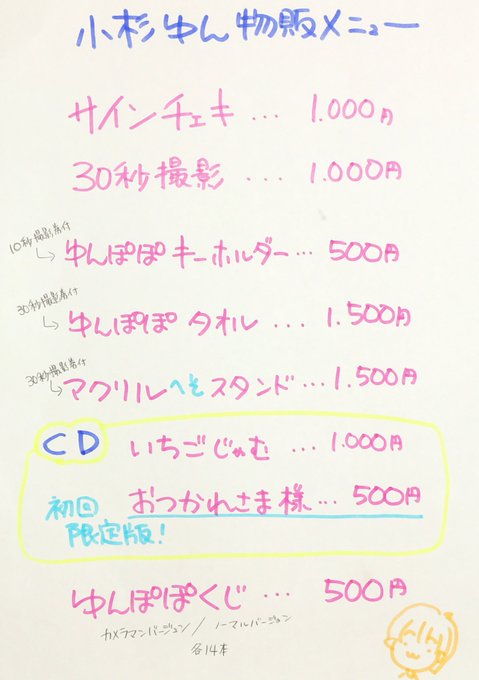 小杉ゆん物販メニュー
サインチェキ ... 1.000円
30秒撮影 ... 1.000円
10秒撮影券付
ゆんぽぽキーホルダー... 500円
30秒撮影券付
ゆんぽぽタオル ... 1.500円
30秒撮影券付
アクリルへそスタンド... 1.500円
CD いちごじゃむ ... 1.000円
初回限定版! おつかれさま様... 500円
ゆんぽぽくじ ... 500円
カメラマンバージョン / ノーマルバージョン
各14本